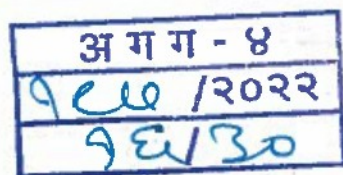 अ ग ग - ४
/२०२२
१६/३०